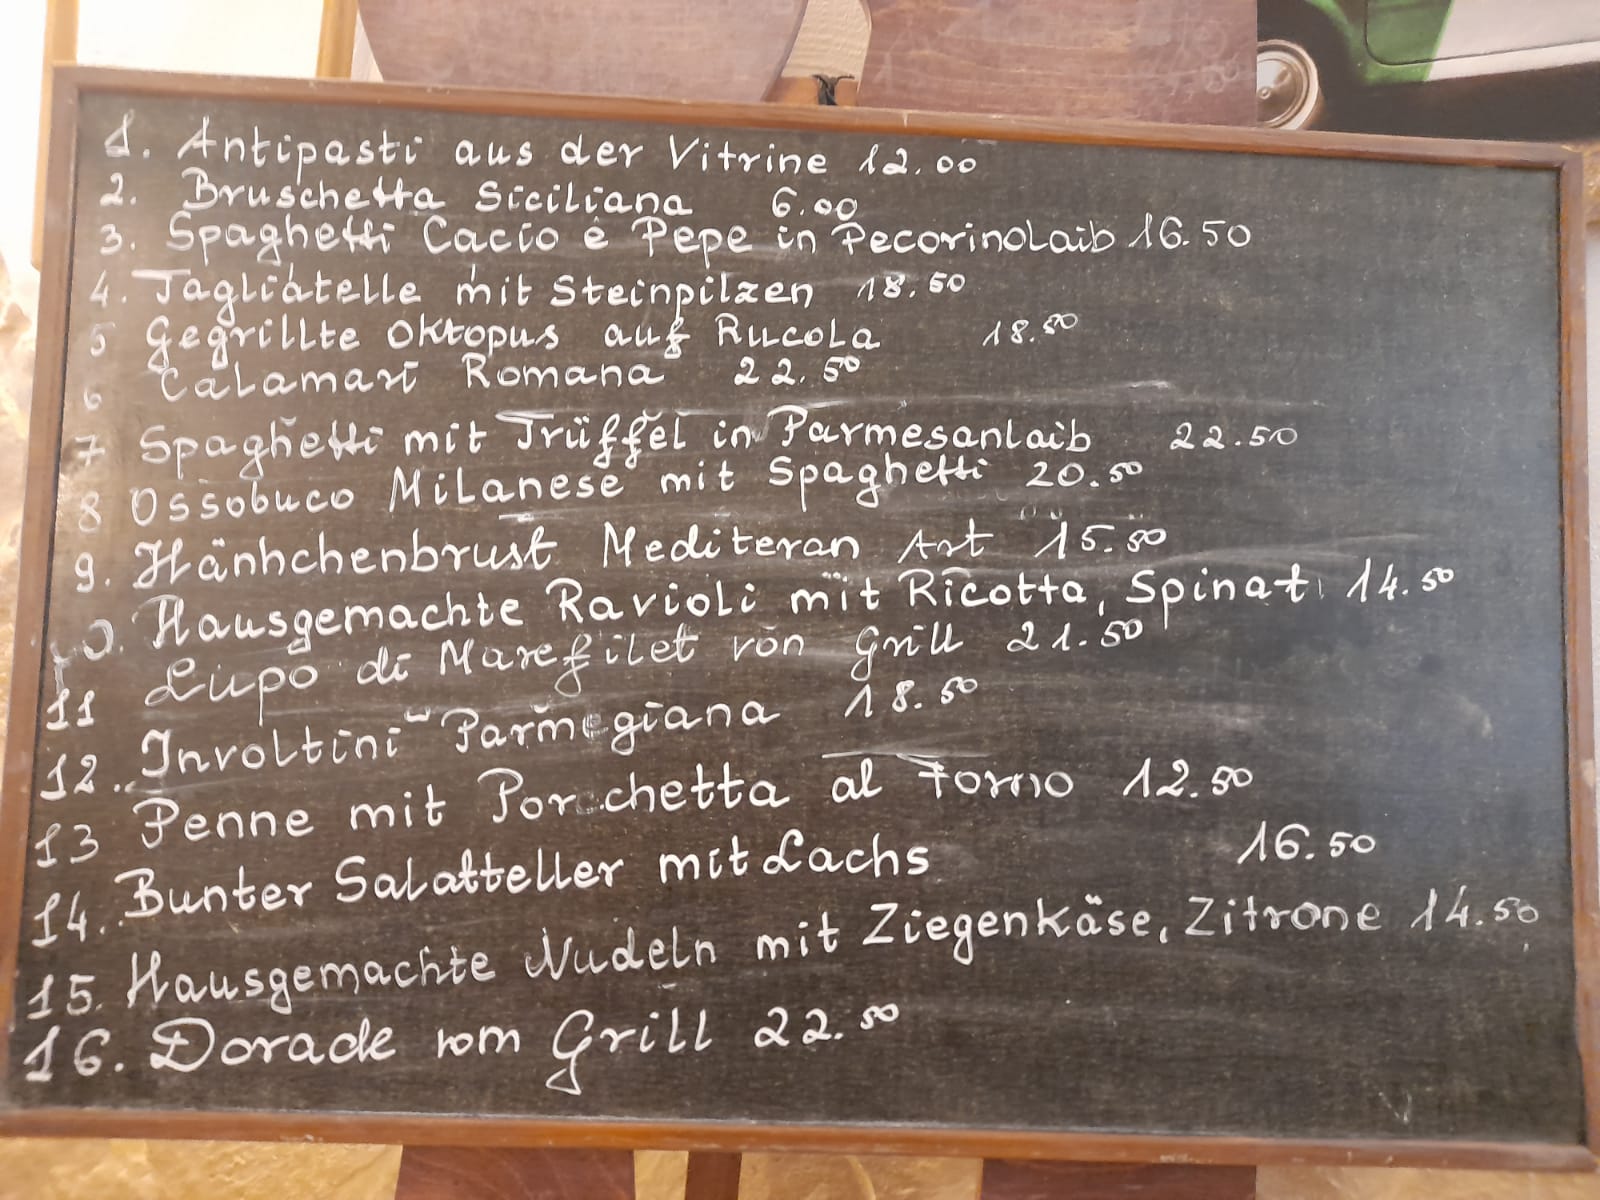 1. Antipasti aus der Vitrine 12.00
2. Bruschetta Siciliana 6.00
3. Spaghetti Cacio é Pepe in Pecorinolaib 16.50
4. Tagliatelle mit Steinpilzen 18.50
5 Gegrillte Oktopus auf Rucola 18.50
6 Calamari Romana 22.50
7 Spaghetti mit Trüffel in Parmesanlaib 22.50
8 Ossobuco Milanese mit Spaghetti 20.50
9. Hänhchenbrust Mediteran Art 15.50
10. Hausgemachte Ravioli mit Ricotta, Spinat 14.50
11 Lupo di Marefilet von Grill 21.50
12. Involtini Parmegiana 18.50
13 Penne mit Porchetta al Forno 12.50
14. Bunter Salatteller mit Lachs 16.50
15. Hausgemachte Nudeln mit Ziegenkäse, Zitrone 14.50
16. Dorade vom Grill 22.50